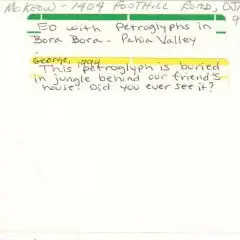 McKeow - 1404 Foothill Road, OJ
9
Ed with Petroglyphs in
Bora Bora - Pahia Valley
George, 1994
This petroglyph is buried
in jungle behind our friend's
house. Did you ever see it?